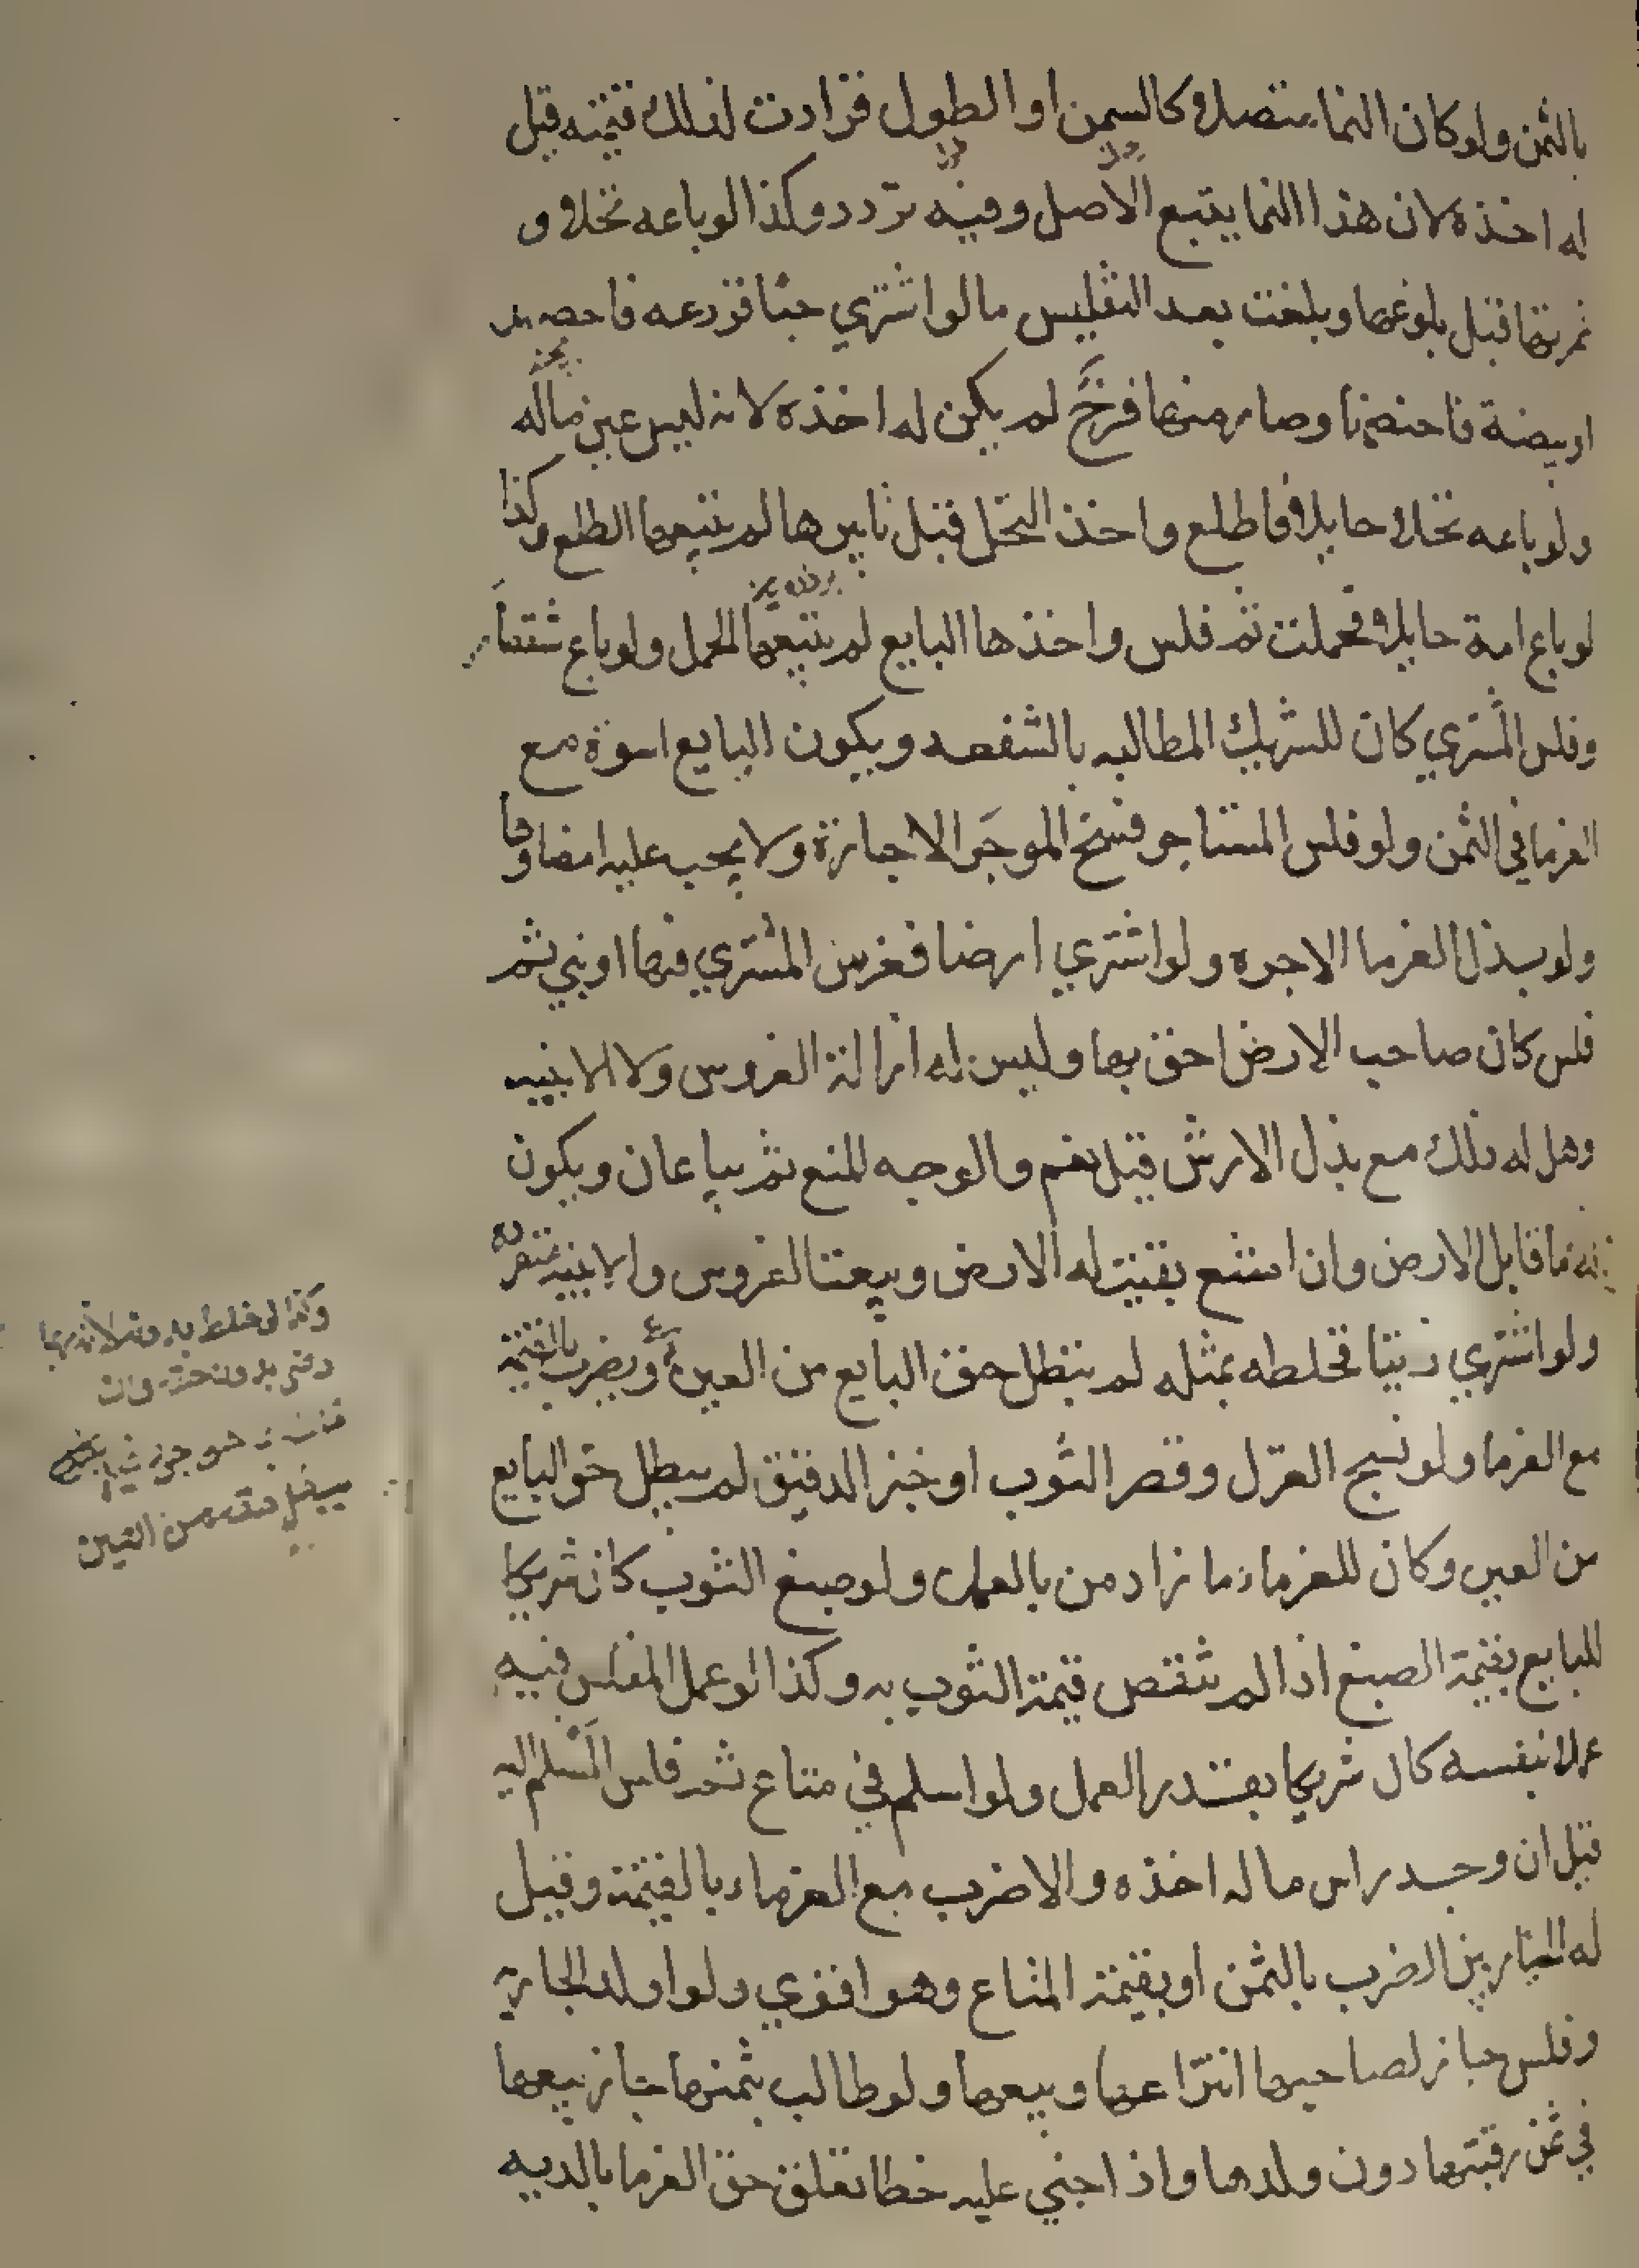 بالثمن ولو كان النما متصلا كالسمن او الطول فزادت لذلك قيمته قيل
له اخذه لان هذا النما يتبع الاصل وفيه تردد وكذا لو باعه نخلا و
ثمرتها قبل بلوغها وبلغت بعد التفليس ما لو اشتري حبا فزرعه فاحصد
او بيضة فاحضنها وصار منها فرخ لم يكن له اخذه لانه ليس عين ماله
ولو باعه نخلا حايلا فاطلع واخذ النخل قبل تابيرها لم يتبعها الطلع وكذا
لو باع امة حايلا فحملت ثم فلس واخذها البايع لم يتبعها الحمل ولو باع شقصا
وفلس المشتري كان للشريك المطالبه بالشفعه ويكون البايع اسوة مع
الغرما في الثمن ولو فلس المستاجر فسخ الموجر الاجارة ولا يجب عليه امضاوها
ولو بذل الغرما الاجره ولو اشتري ارضا فغرس المشتري فيها او بني ثم
فلس كان صاحب الارض احق بها وليس له ازالة الغروس ولا الابنيه
وهل له ذلك مع بذل الارش قيل نعم والوجه المنع ثم يباعان ويكون
له ما قابل الارض وان امتنع بقيت له الارض وبيعت الغروس والابنيه منفرده
ولو اشتري زيتا فخلطه بمثله لم يبطل حق البايع من العين ويضرب بالقيمة
مع الغرما ولو نسج الغزل وقصر الثوب او خبز الدقيق لم يبطل حق البايع
من العين وكان للغرماء ما زاد من بالعمل ولو صبغ الثوب كان شريكا
للبايع بقيمة الصبغ اذا لم تنقص قيمة الثوب به وكذا لو عمل المفلس فيه
عملا بنفسه كان شريكا بقدر العمل ولو اسلم في متاع ثم فلس المسلم اليه
قيل ان وجد راس ماله اخذه والا ضرب مع الغرماء بالقيمة وقيل
له الخيار بين الضرب بالثمن او بقيمة المتاع وهو اقوي ولو اولد الجارية
وفلس جاز لصاحبها انتزاعها وبيعها ولو طالب بثمنها جاز بيعها
في ثمن رقبتها دون ولدها واذا جني عليه خطا تعلق حق الغرما بالديه
وكذا لو خلط به
دون حقه وان
من العين